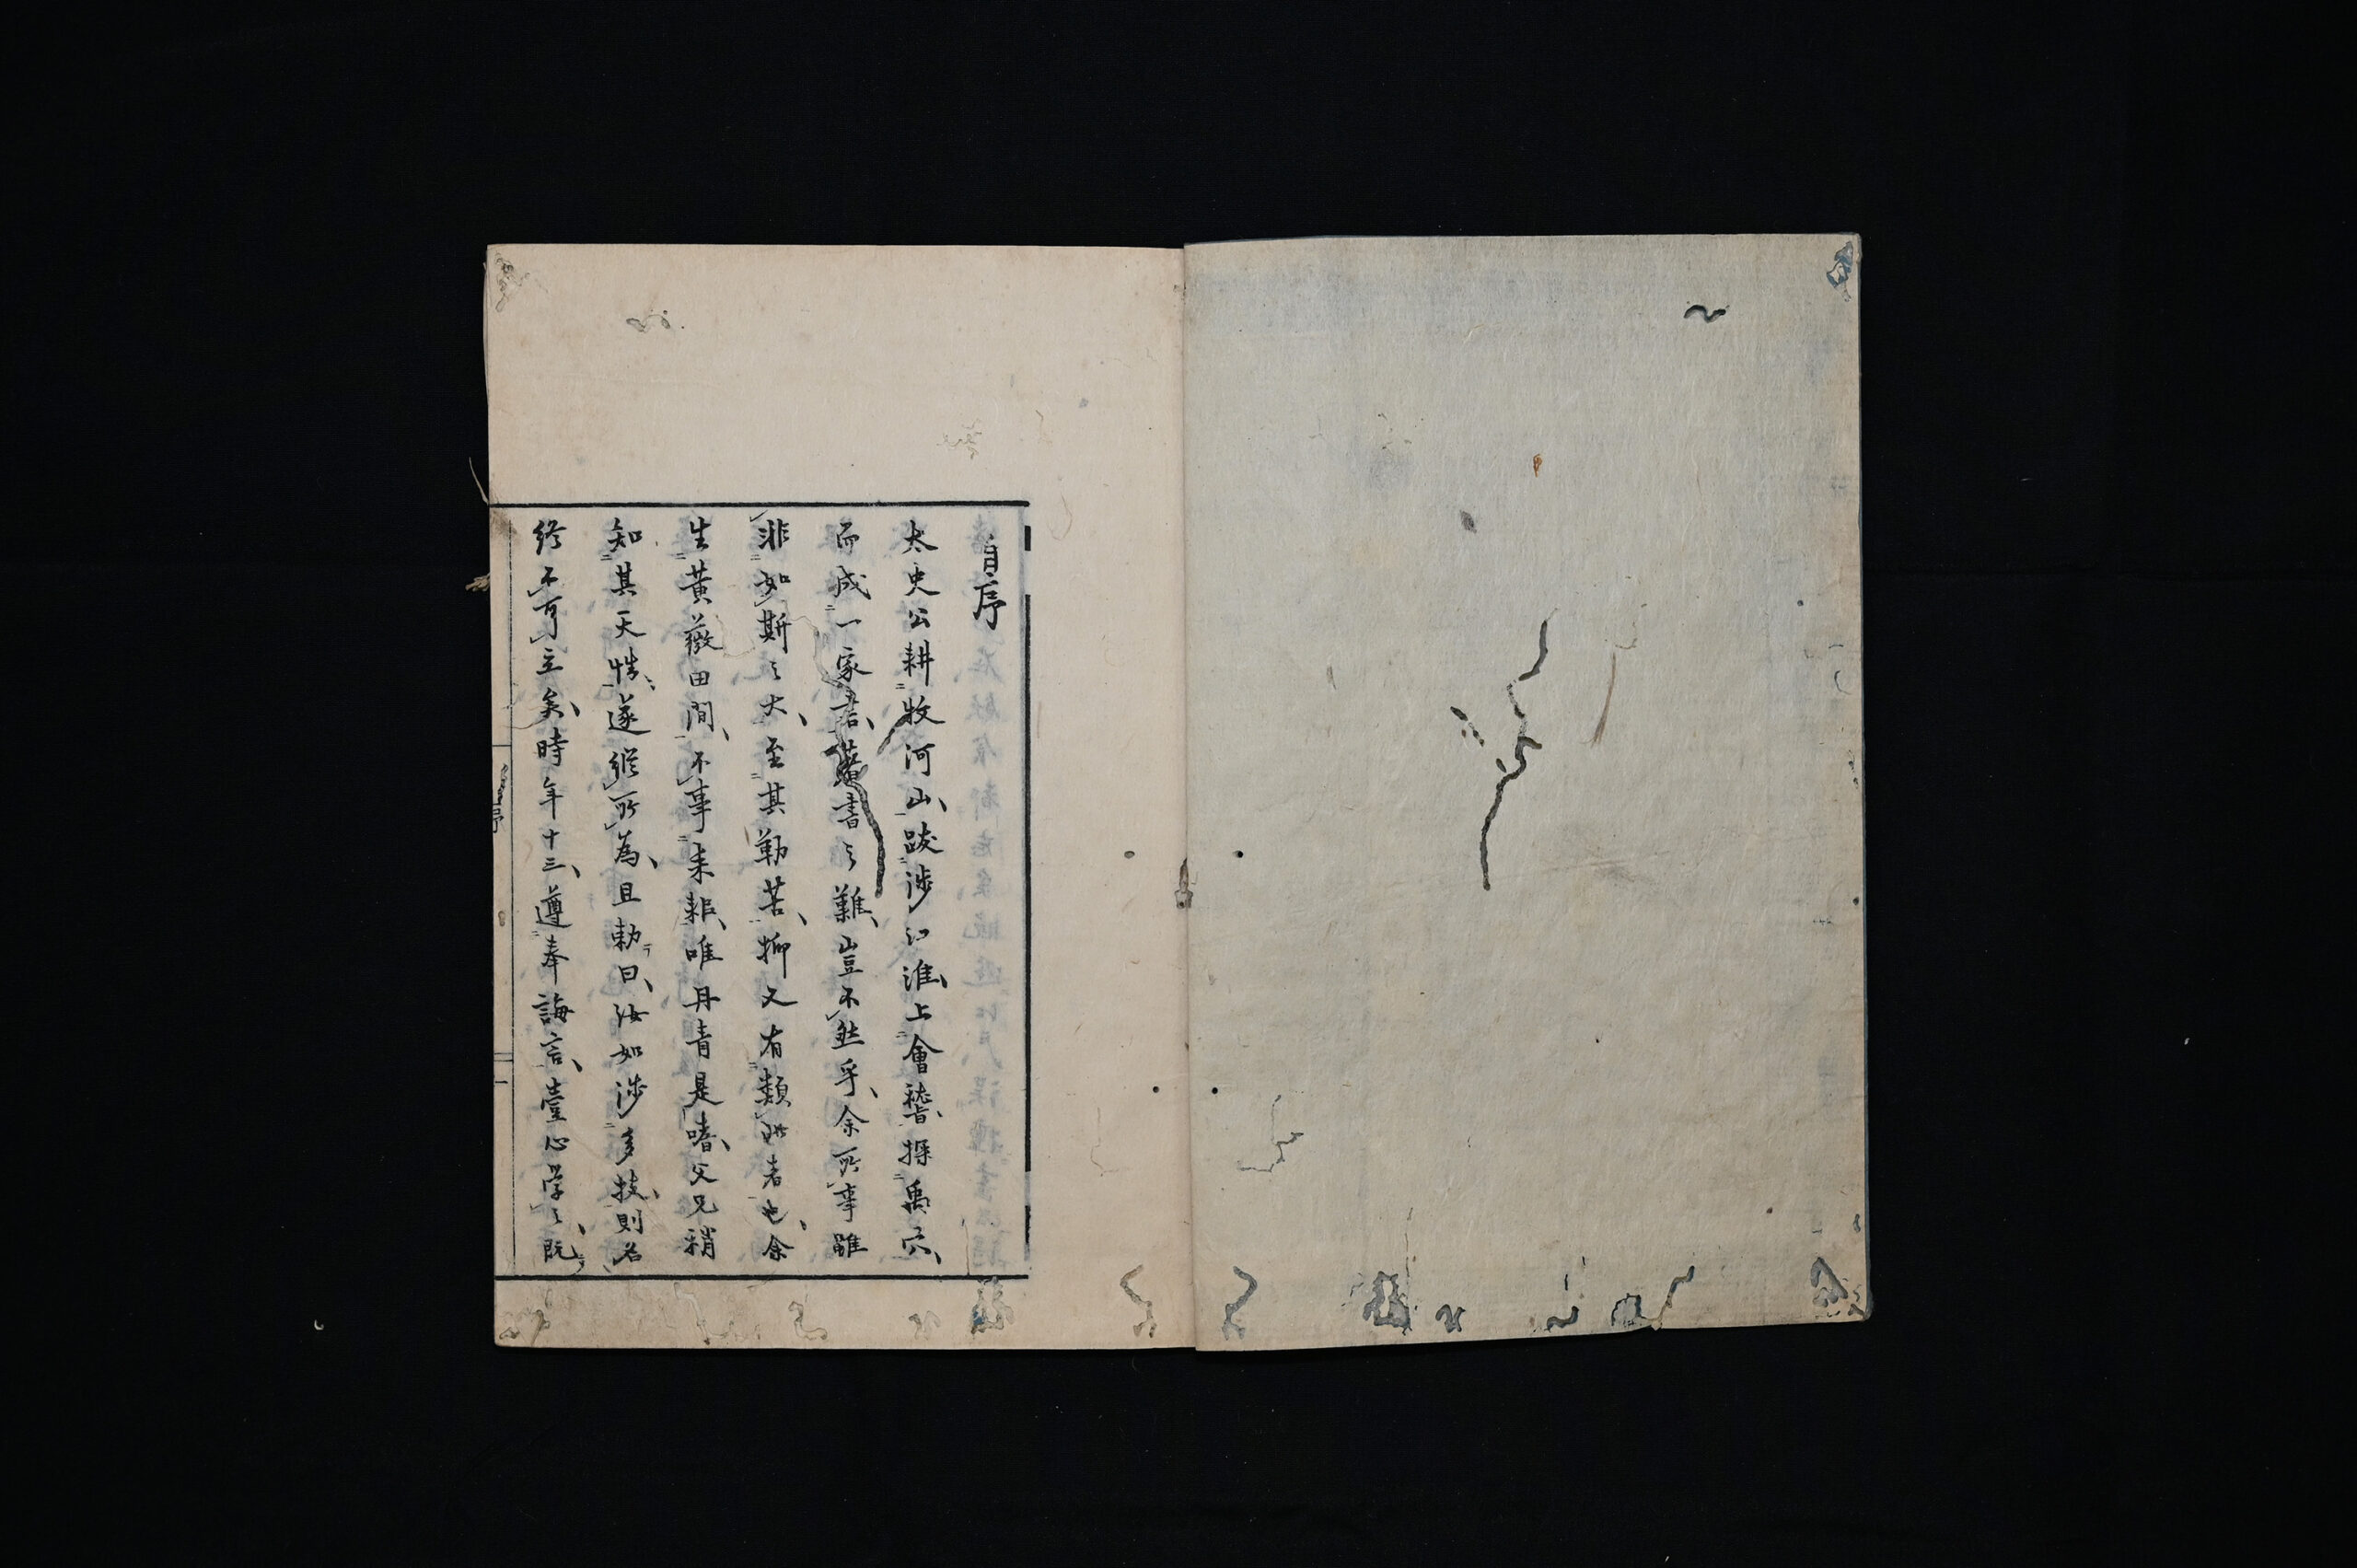 自序
太史公耕牧河山跋涉江淮上會稽探禹穴
而成一家言著書之難豈不然乎余所事雖
非如斯之大至其勤苦抑又有類此者也余
生黄薇田間不事耒耜唯丹青是嗜父兄稍
知其天性遂縱所為且勅曰汝如涉多技則名
終不可立矣時年十三遵奉誨言壹心学之既
序
一